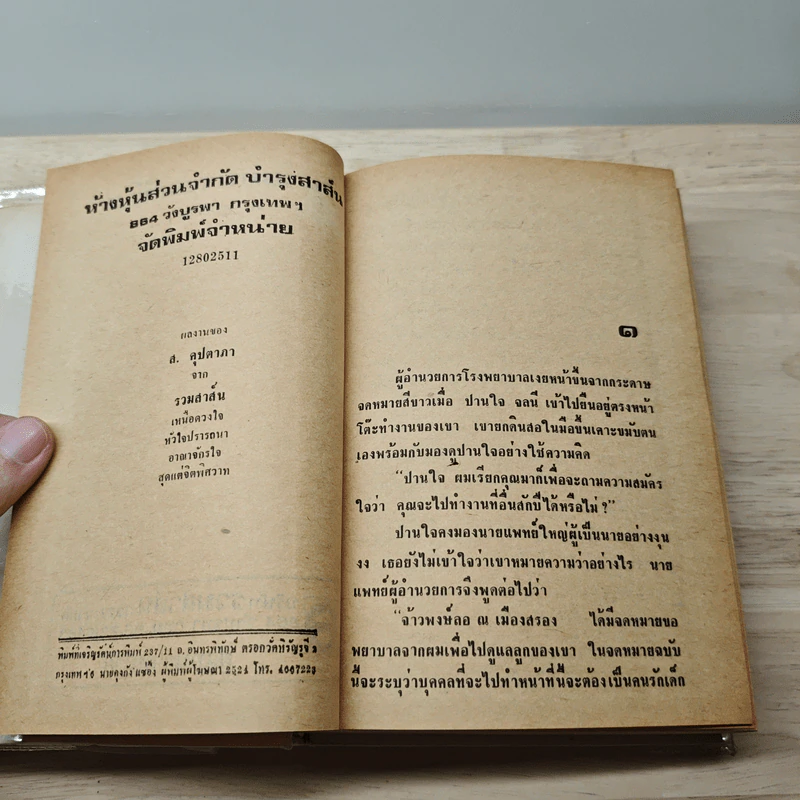 ห้างหุ้นส่วนจำกัด บำรุงสาส์น
864 วังบูรพา กรุงเทพฯ
จัดพิมพ์จำหน่าย
12802511
ผลงานของ
ส. คุปตาภา
จาก
รวมสาส์น
เหนือดวงใจ
หัวใจปรารถนา
อาณาจักรใจ
สุดแต่จิตพิศวาท
พิมพ์ที่เจริญรัตน์การพิมพ์ 237/11 ถ. อินทรพิทักษ์ ตรอกวัดหิรัญรูจี
กรุงเทพฯ นายคุงกัง แซ่อึ้ง ผู้พิมพ์ผู้โฆษณา 2521 โทร. 4667223
๑
ผู้อำนวยการโรงพยาบาลเงยหน้าขึ้นจากกระดาษ
จดหมายสีขาวเมื่อ ปานใจ จลนี เข้าไปยืนอยู่ตรงหน้า
โต๊ะทำงานของเขา เขายกดินสอในมือขึ้นเคาะขมับตน
เองพร้อมกับมองดูปานใจอย่างใช้ความคิด
“ปานใจ ผมเรียกคุณมาก็เพื่อจะถามความสมัคร
ใจว่า คุณจะไปทำงานที่อื่นสักปีได้หรือไม่ ?”
ปานใจคงมองนายแพทย์ใหญ่ผู้เป็นนายอย่างงุน
งง เธอยังไม่เข้าใจว่าเขาหมายความว่าอย่างไร นาย
แพทย์ผู้อำนวยการจึงพูดต่อไปว่า
“จ้าวพงษ์ลอ ณ เมืองสรอง ได้มีจดหมายขอ
พยาบาลจากผมเพื่อไปดูแลลูกของเขา ในจดหมายฉบับ
นี้จะระบุว่าบุคคลที่จะไปทำหน้าที่นี้จะต้องเป็นคนรักเด็ก